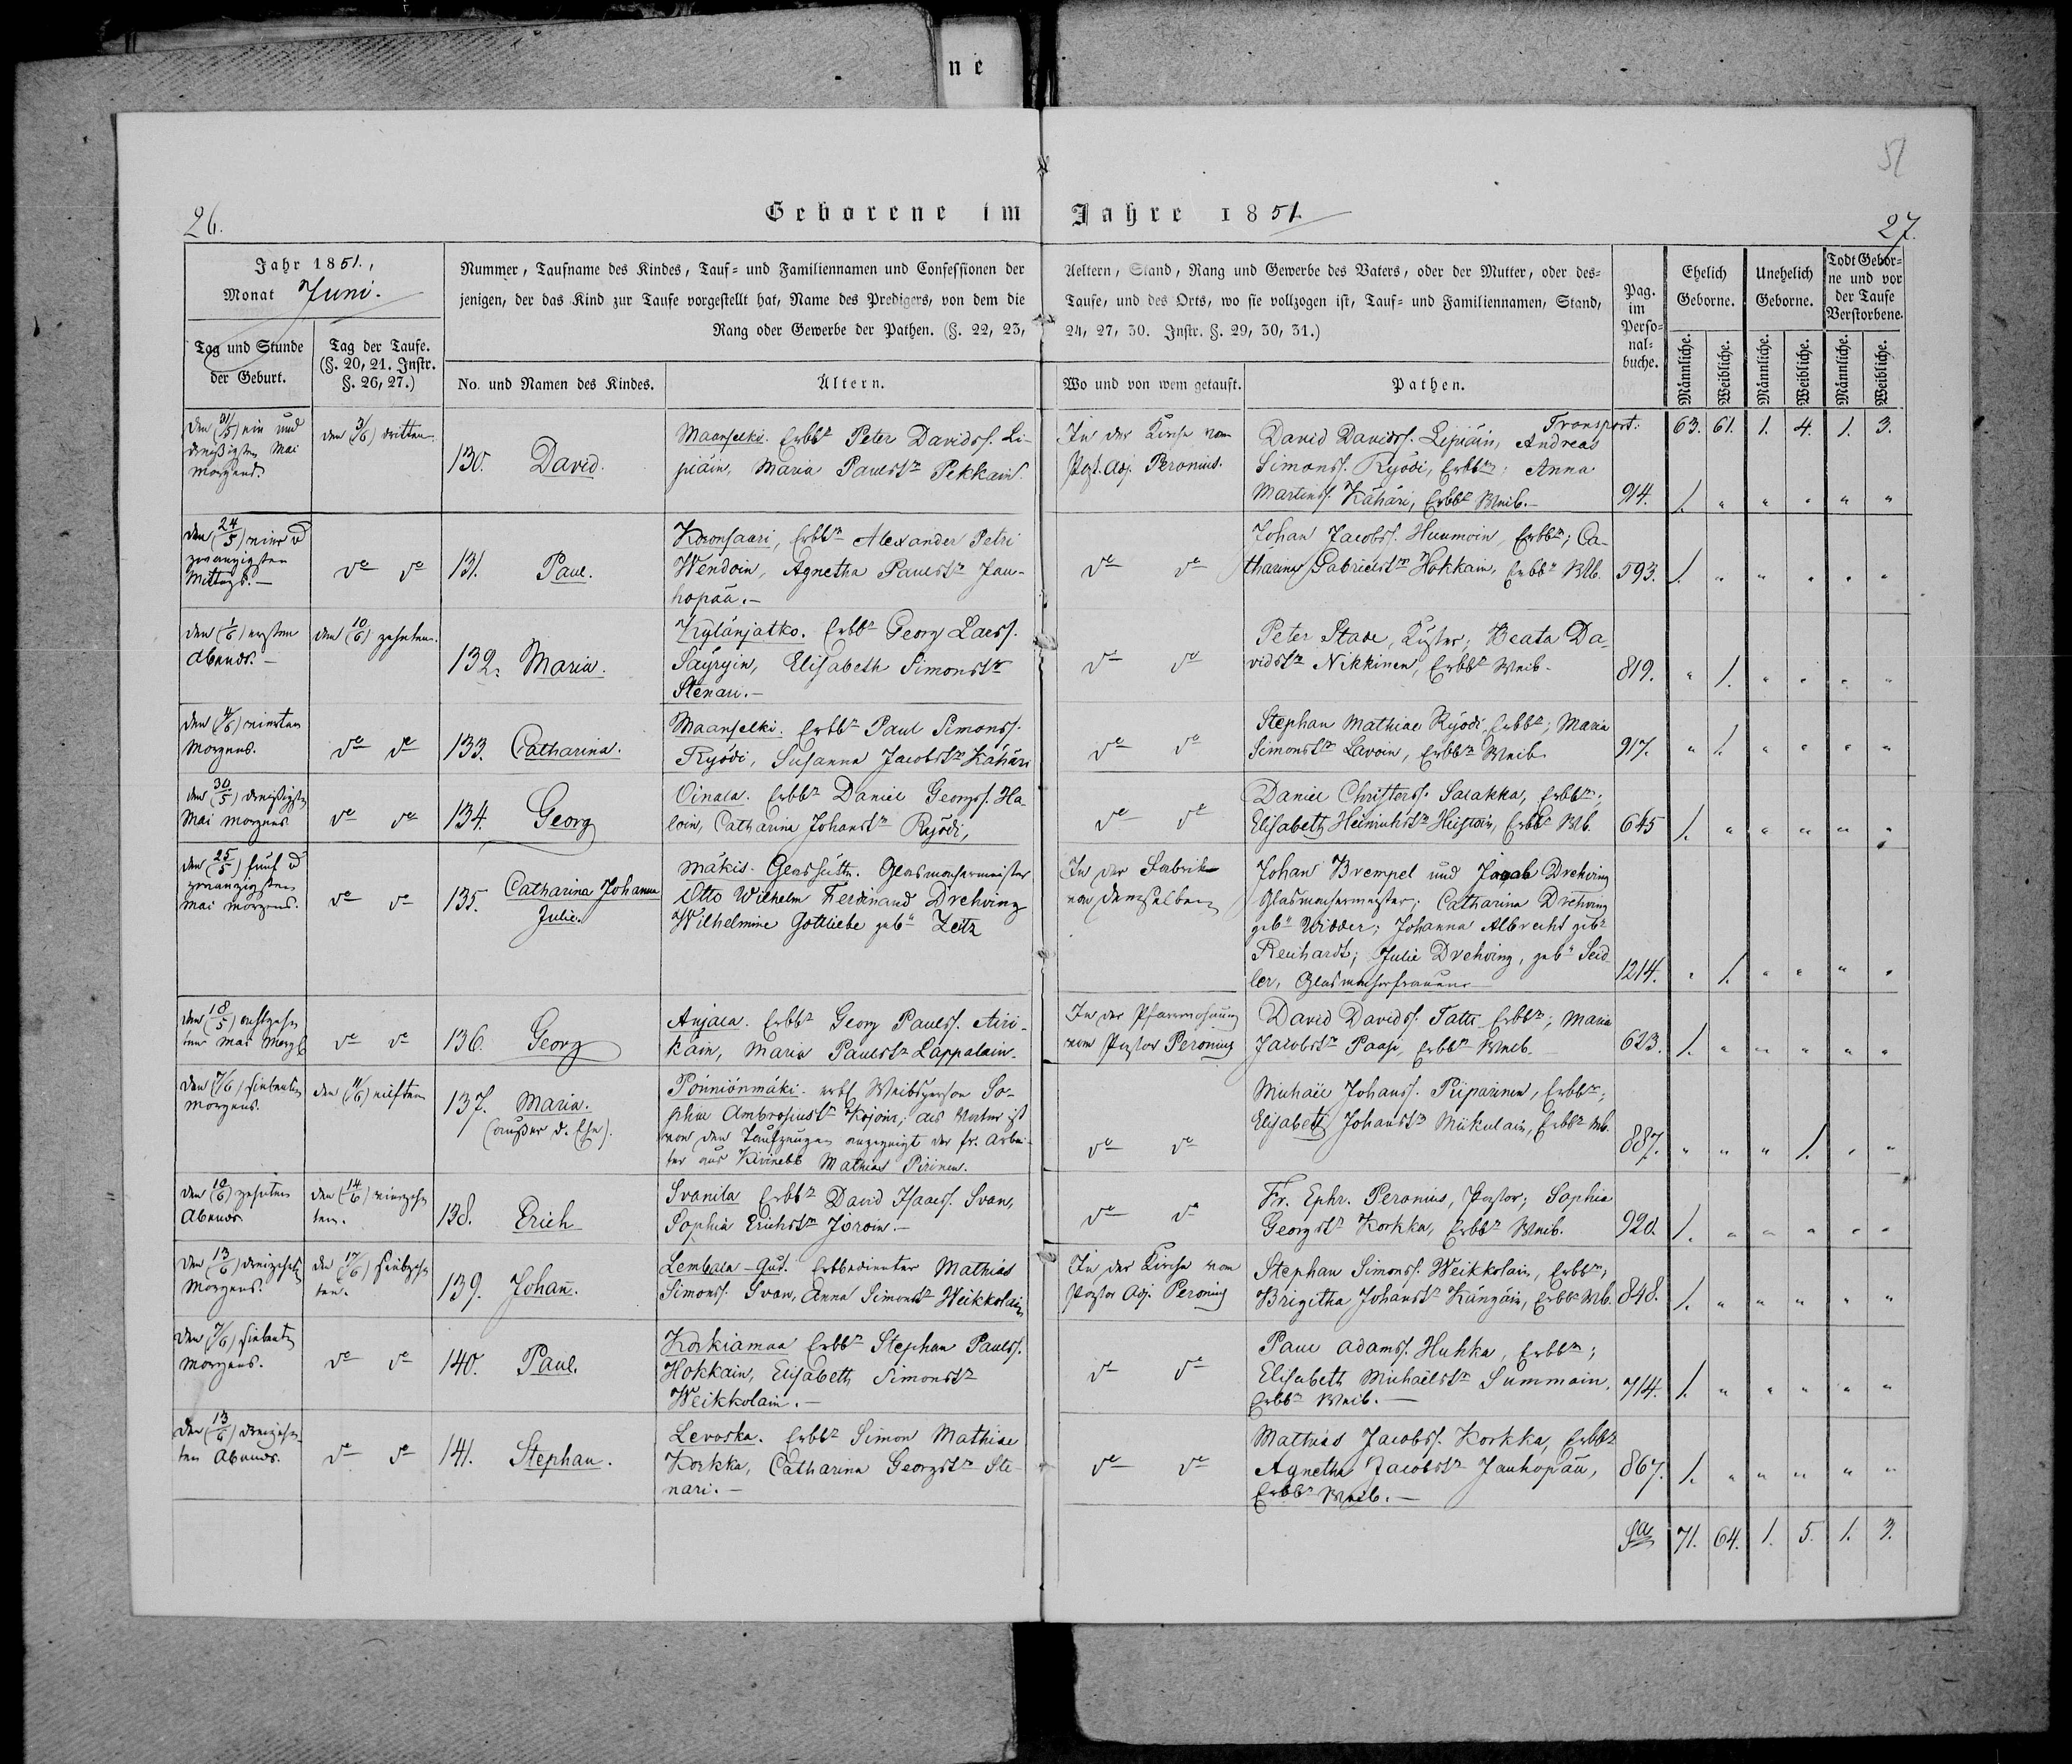 ne
51
26.
Geborene im Jahre 1851.
27.
Jahr 1851.,
Monat Juni.
Tag und Stunde
der Geburt.
Tag der Taufe.
(§. 20, 21. Instr.
§. 26, 27.)
Nummer, Taufname des Kindes, Tauf= und Familiennamen und Confessionen der
jenigen, der das Kind zur Taufe vorgestellt hat, Name des Predigers, von dem die
Rang oder Gewerbe der Pathen. (§. 22, 23,
No. und Namen des Kindes.
Ältern.
Aeltern, Stand, Rang und Gewerbe des Vaters, oder der Mutter, oder des=
Taufe, und des Orts, wo sie vollzogen ist, Tauf= und Familiennamen, Stand,
24, 27, 30. Instr. §. 29, 30, 31.)
Wo und von wem getauft.
Pathen.
Pag.
im
Perso=
nal=
buche.
Ehelich
Geborne.
Unehelich
Geborne.
Todt Gebor=
ne und vor
der Taufe
Verstorbene.
Männliche.
Weibliche.
Männliche.
Weibliche.
Männliche.
Weibliche.
Transport: 63. 61. 1. 4. 1. 3.
den (31/5) ein und
dreißigsten Mai
Morgens.
den (3/6) dritten.
130. David.
Maanselki. Erbbr Peter Davidss. Li-
piäin, Maria Paulstr Pekkain.
In der Kirche vom
Past. Adj. Peronius.
David Davidss. Lipiäin, Andreas
Simonss. Ryödi, Erbbr; Anna
Martinss. Kähäri, Erbbr Weib.—
914. 1. " " " " "
den (24/5) vier u
zwanzigsten
Mittags.—
do do
131. Paul.
Koronsaari, Erbbr Alexander Petri
Wendoin, Agnetha Paulstr Jau-
hopää.—
do do
Johan Jacobss. Huumoin, Erbbr; Ca-
tharina Gabrielstr Hokkain, Erbbr Wb.
593. 1. " " " " "
den (1/6) ersten
Abends.—
den (10/6) zehnten.
132. Maria.
Kylänjatko. Erbbr Georg Larss.
Säyryin, Elisabeth Simonstr
Stenari.—
do do
Peter Stade, Küster; Beata Da-
vidstr Nikkinen, Erbbr Weib.
819. " 1. " " " "
den (4/6) vierten
Morgens.
do do
133. Catharina.
Maanselki. Erbbr Paul Simonss.
Ryödi, Susanna Jacobstr Kähäri
do do
Stephan Mathiae Ryödi, Erbbr; Maria
Simonstr Lavoin, Erbbr Weib
917. " 1. " " " "
den (30/5) dreißigsten
Mai Morgens
do do
134. Georg
Oinala. Erbbr Daniel Georgss. Ha-
loin, Catharina Johanstr Ryödi,
do do
Daniel Christerss. Salakka, Erbbr;
Elisabeth Heinrichstr Erbbr Wb.
645 1. " " " " "
den (25/5) fünf u
zwanzigsten
Mai Morgens.
do do
135. Catharina Johanna
Julie.
Mäkis. Glashütte. Glasmachermeister
Otto Wilhelm Ferdinand Drehwing
Wilhelmine Gottliebe geb. Zeitz
In der Fabrik
von demselben
Johan Brempel und Jacob Drehwing
Glasmachermeister; Catharina Drehwing
geb. Widder; Johanna Albrecht geb.
Reinhardt; Julie Drehwing, geb. Seid-
ler, Glasmacherfrauen
1214. " 1. " " " "
den (18/5) achtzehn
ten Mai Morg.
do do
136. Georg
Anjala. Erbbr Georg Paulss. Airi-
kain, Maria Paulstr Lappalain.
In der Pfarrwohnung
vom Pastor Peronius
David Davidss. Tatti Erbbr; Maria
Jacobstr Paasi, Erbbr Weib.
623. 1. " " " " "
den (7/6) siebenten
Morgens.
den (11/6) eilften
137. Maria.
(außer d. Ehe).
Pönniönmäki. erbl. Weibsperson So-
phia Ambrosiustr Kojoin; als Vater ist
von den Taufzeugen angezeigt der fr. Arbei-
ter aus Kivinebb Mathias Pirinen.
do do
Michael Johanss. Piiparinen, Erbbr;
Elisabeth Johanstr Mikkulain, Erbbr Wb.
887. " " " 1. " "
den (10/6) zehnten
Abends
den (14/6) vierzehn
ten.
138. Erich
Svanila Erbbr David Isaacss. Svan,
Sophia Erichstr Joroin.—
do do
Fr. Ephr. Peronius, Pastor; Sophia
Georgstr Korkka, Erbbr Weib.
920. 1. " " " " "
den (13/6) dreizehnten
Morgens.
den (17/6) siebzehn
ten.
139. Johan.
Lembala-Gut. Erbbedienter Mathias
Simonss. Svan, Anna Simonstr Weikkolain
In der Kirche vom
Pastor Adj. Peronius
Stephan Simonss. Weikkolain, Erbbr;
Brigitha Johanstr Kängäin, Erbbr Wb.
848. 1. " " " " "
den (7/6) siebenten
Morgens.
do do
140. Paul.
Korkiamaa Erbbr Stephan Paulss.
Hokkain, Elisabeth Simonstr
Weikkolain.—
do do
Paul Adamss. Huhka, Erbbr;
Elisabeth Michaelstr Summain,
Erbbr Weib.—
714. 1. " " " " "
den (13/6) dreizehn-
ten Abends.
do do
141. Stephan.
Levoska. Erbbr Simon Mathiae
Korkka, Catharina Georgstr Ste-
nari.—
do do
Mathias Jacobss. Korkka, Erbbr
Agnetha Jacobstr Jauhopää,
Erbbr Weib.—
867. 1. " " " " "
Sa 71. 64. 1. 5. 1. 3.